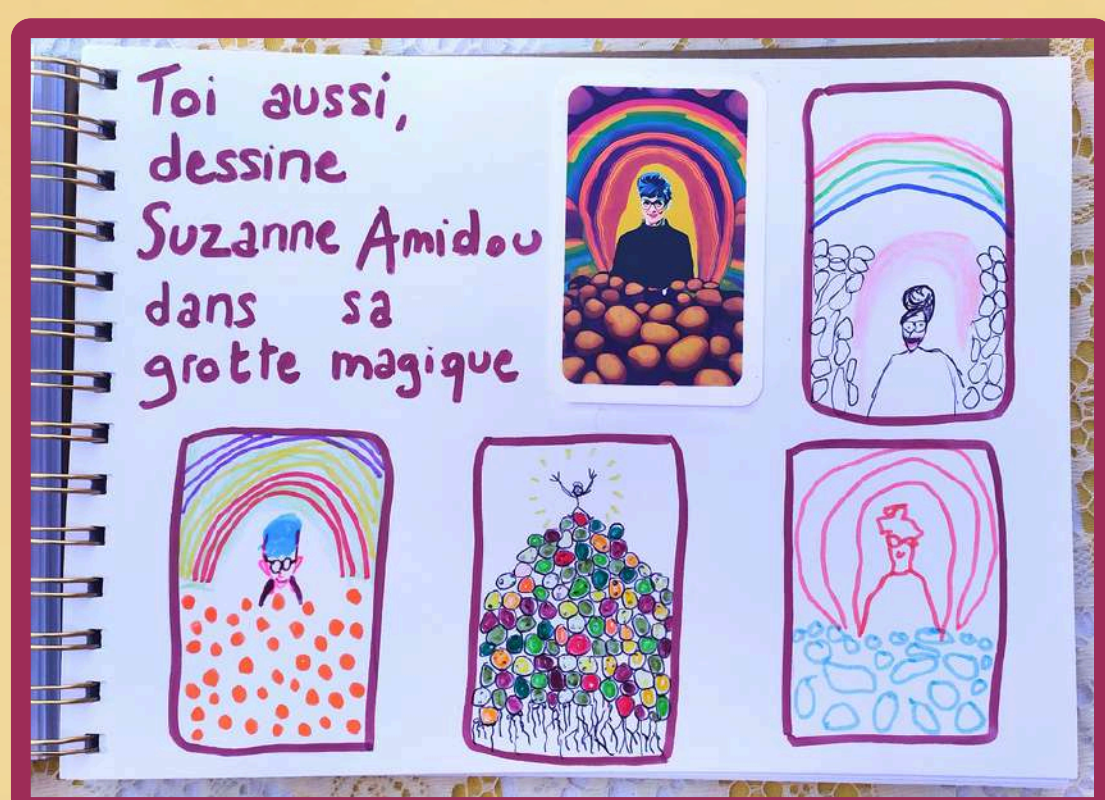 Toi aussi,
dessine
Suzanne Amidou
dans sa
grotte magique